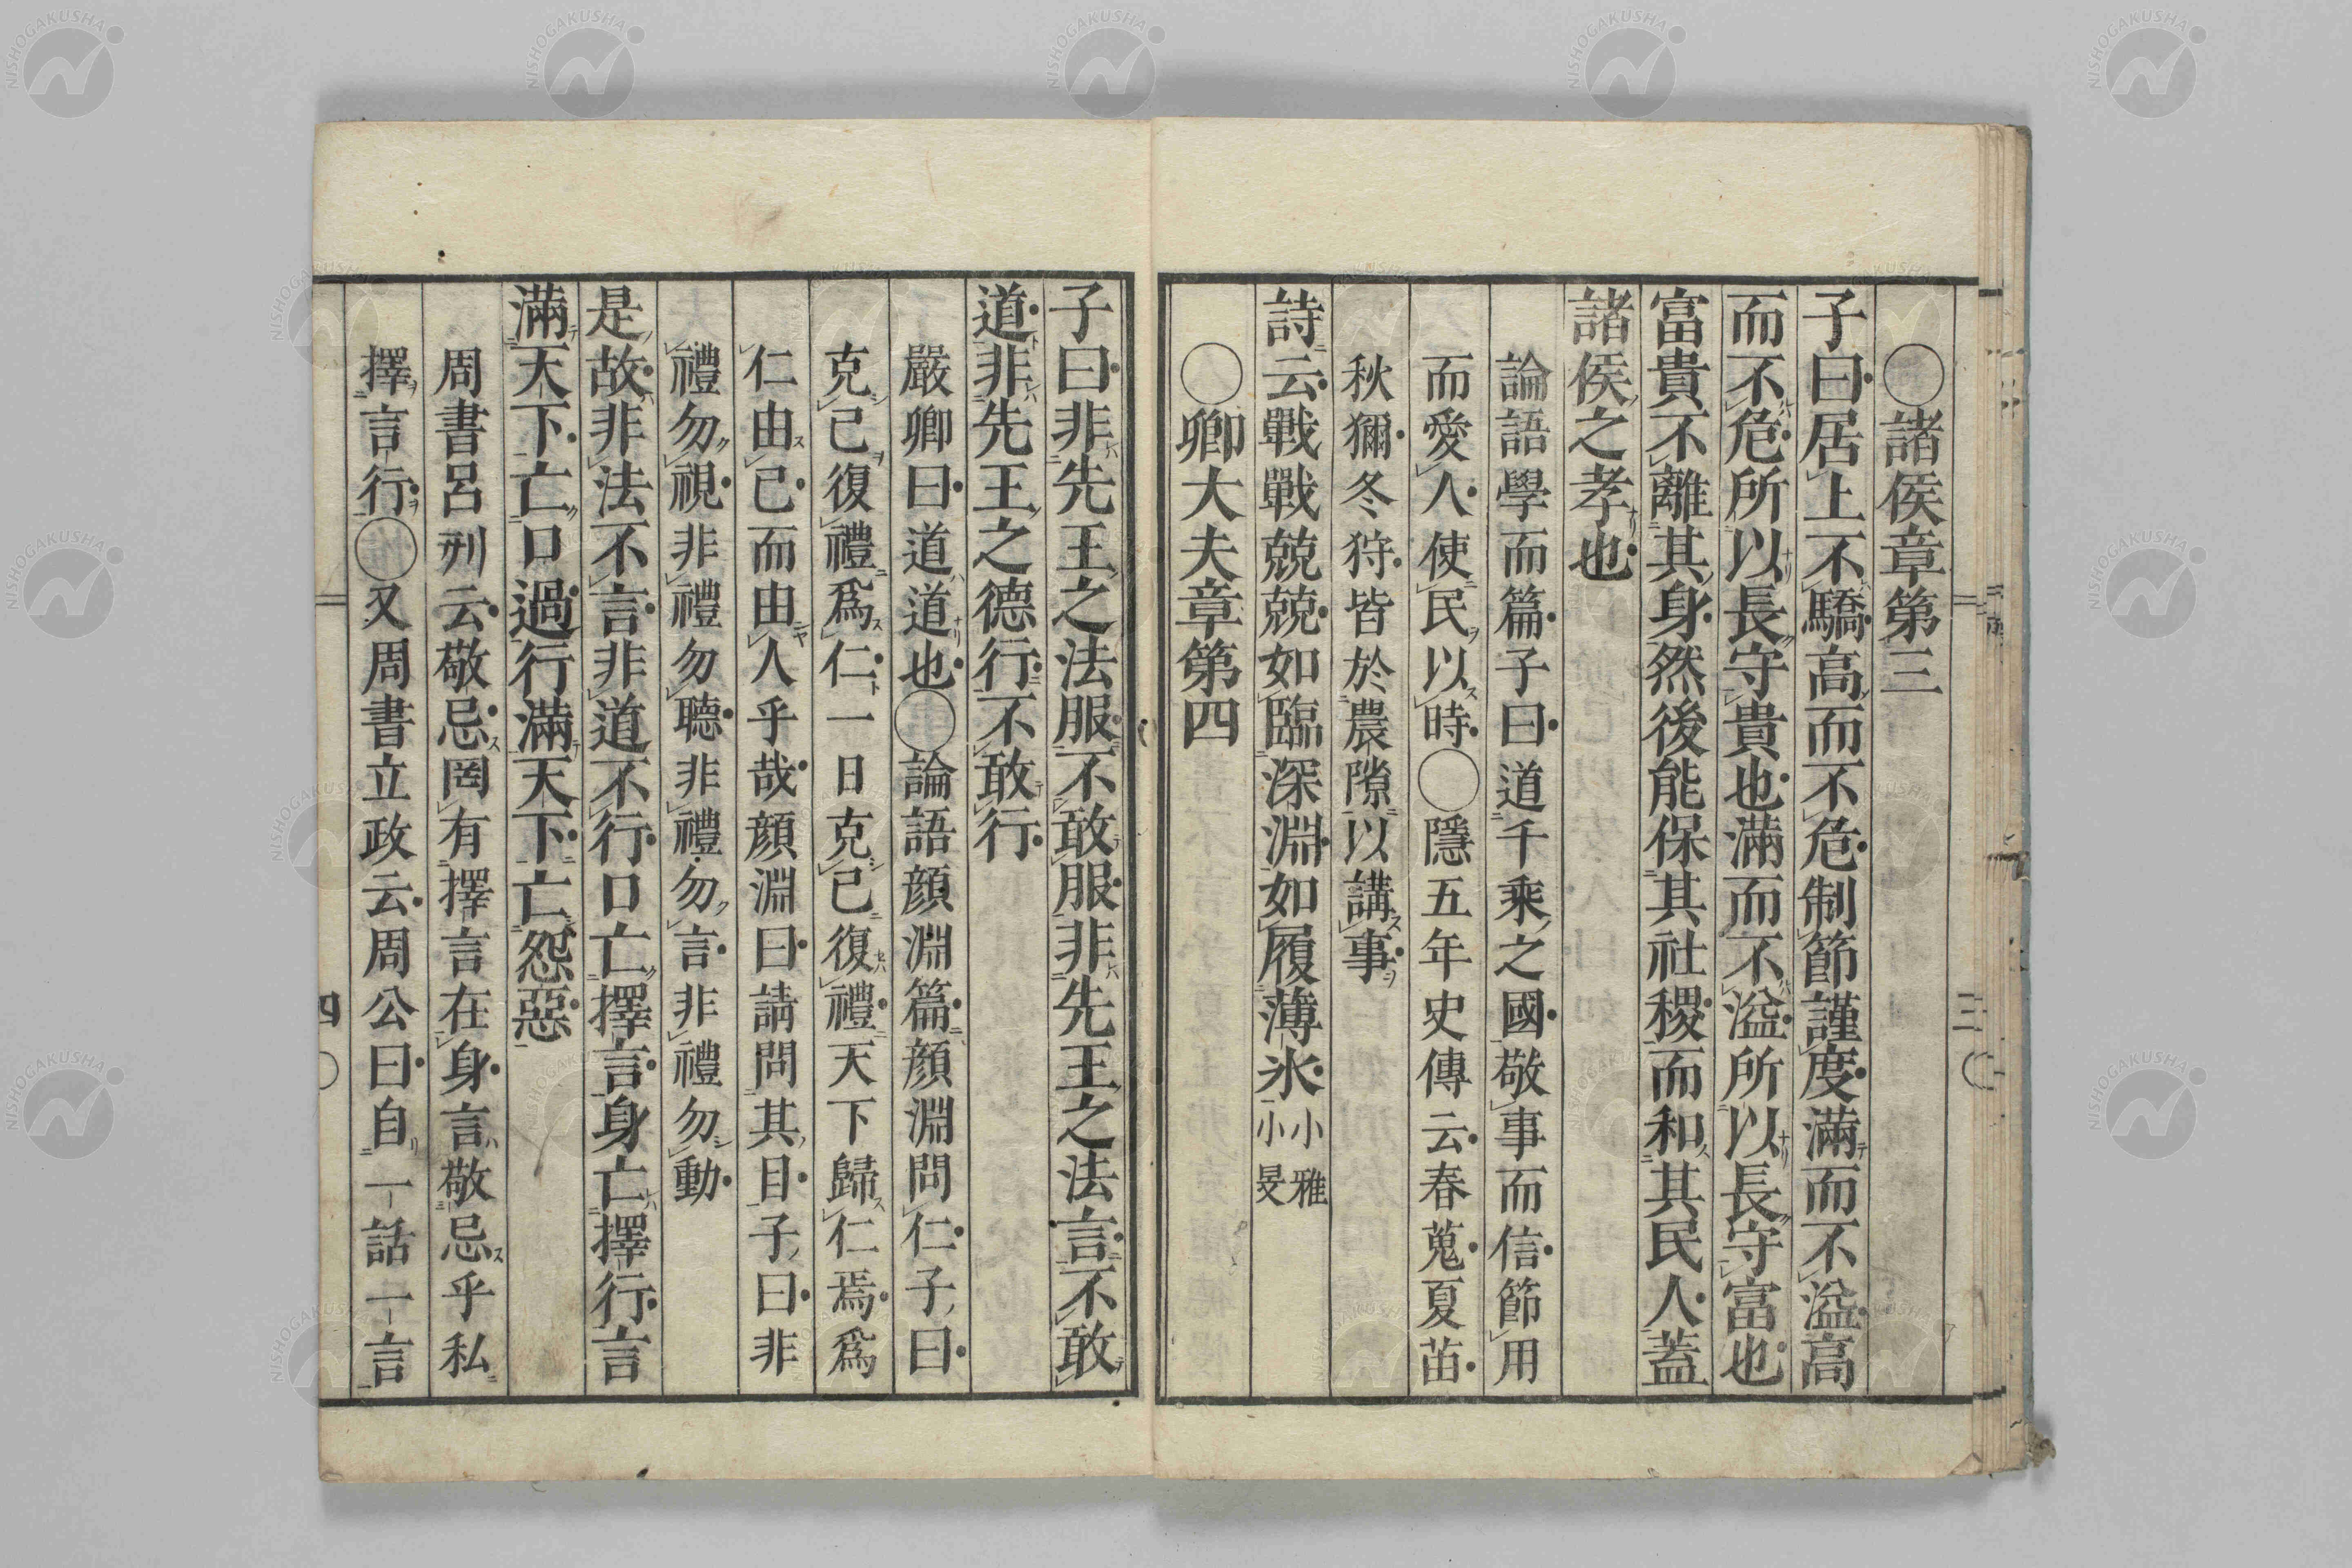 ◯諸侯章第三
子曰居上不驕高而不危制節謹度滿而不溢高
而不危所以長守貴也滿而不溢所以長守富也
富貴不離其身然後能保其社稷而和其民人蓋
諸侯之孝也
論語學而篇子曰道千乘之國敬事而信節用
而愛人使民以時◯隱五年史傳云春蒐夏苗
秋獮冬狩皆於農隙以講事
詩云戰戰兢兢如臨深淵如履薄氷小雅小旻
◯卿大夫章第四
三
子曰非先王之法服不敢服非先王之法言不敢
道非先王之德行不敢行
嚴卿曰道道也◯論語顔淵篇顔淵問仁子曰
克己復禮爲仁一日克己復禮天下歸仁焉爲
仁由己而由人乎哉顔淵曰請問其目子曰非
禮勿視非禮勿聽非禮勿言非禮勿動
是故非法不言非道不行口亡擇言身亡擇行言
滿天下亡口過行滿天下亡怨惡
周書呂刑云敬忌罔有擇言在身言敬忌乎私
擇言行◯又周書立政云周公曰自一話一言
四
NISHOGAKUSHA